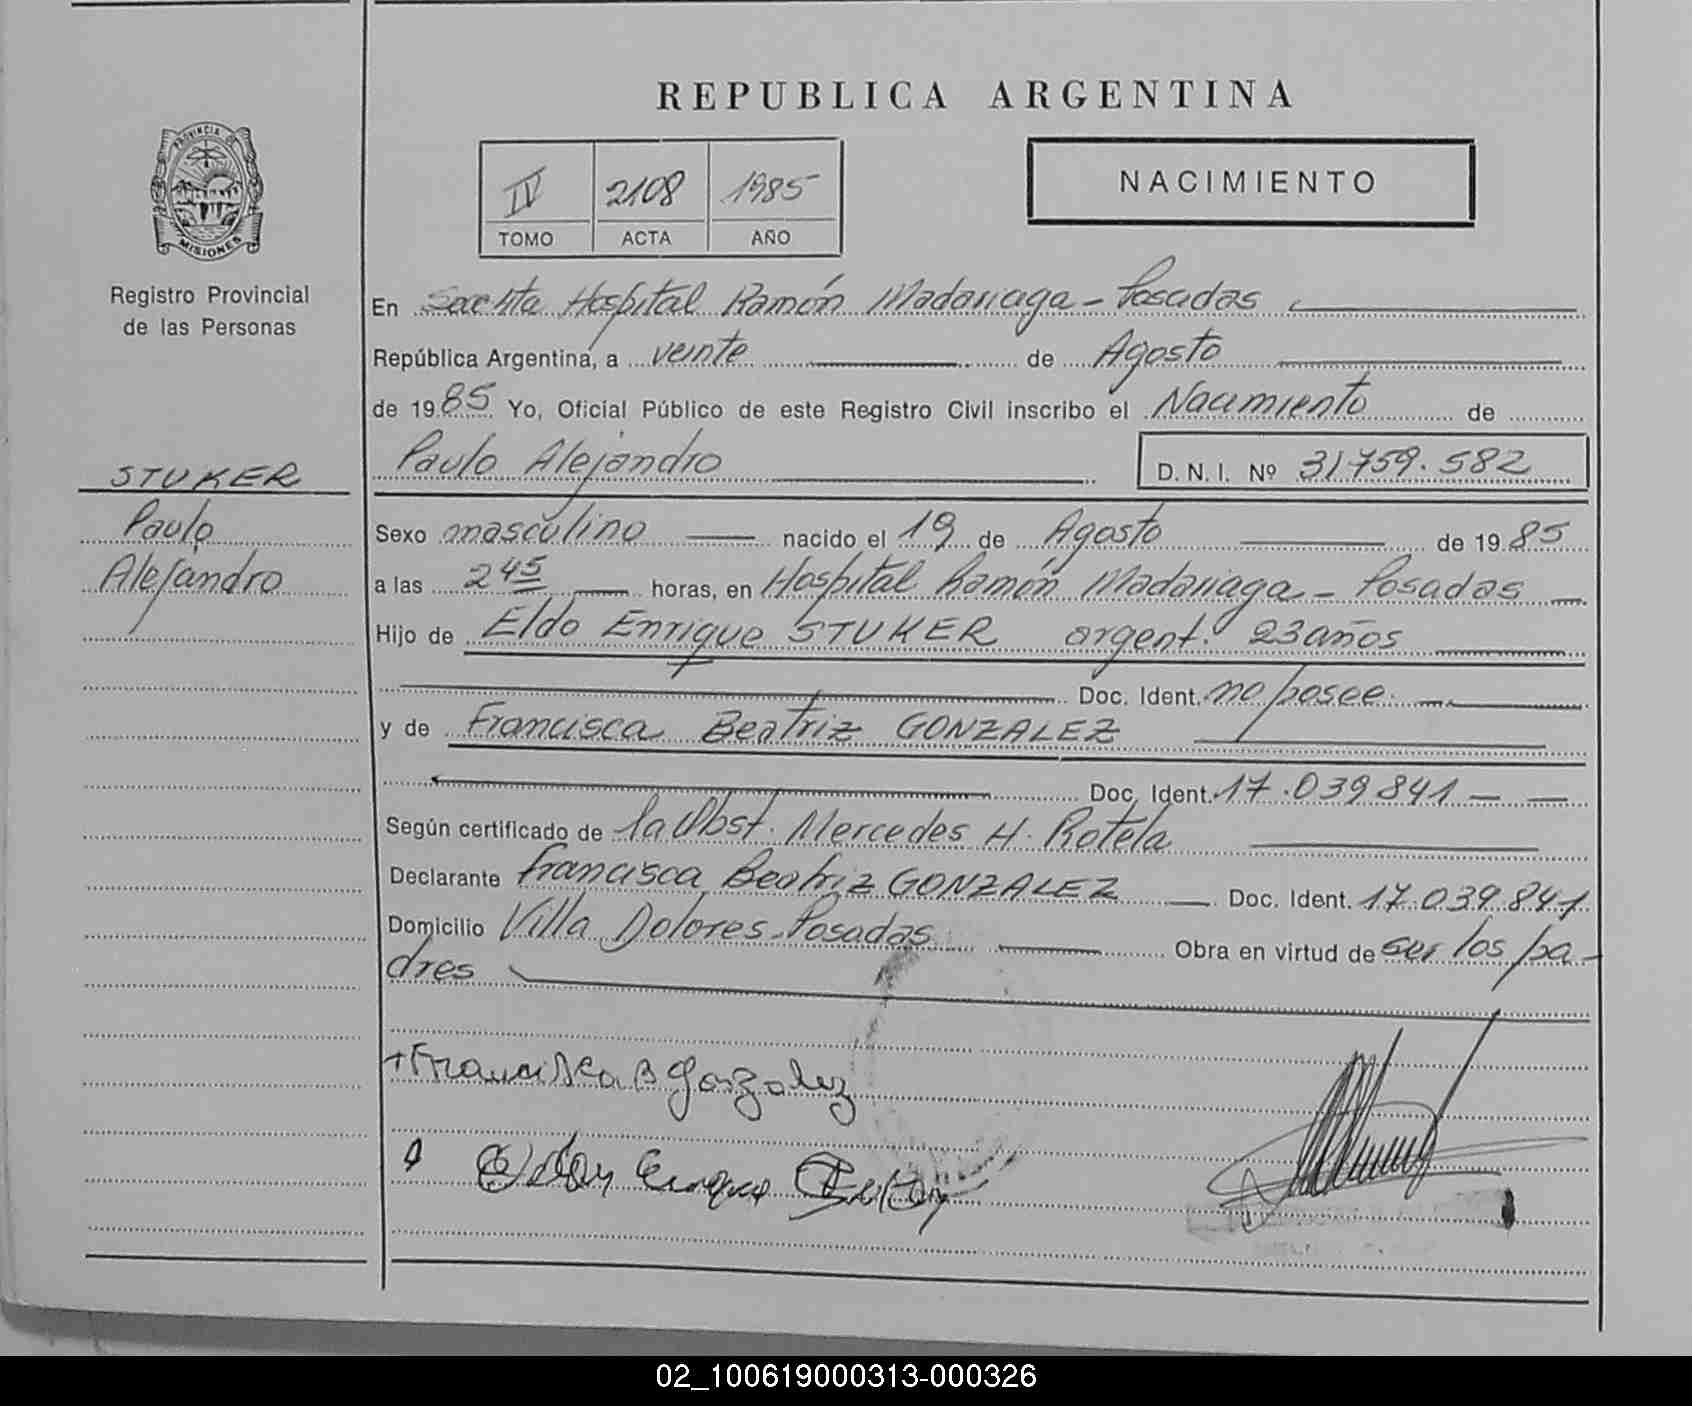 REPUBLICA ARGENTINA
PROVINCIA DE
MISIONES
Registro Provincial
de las Personas
IV 2108 1985
TOMO ACTA AÑO
NACIMIENTO
En Secc 4ta Hospital Ramón Madariaga - Posadas
República Argentina, a veinte de Agosto
de 1985 Yo, Oficial Público de este Registro Civil inscribo el Nacimiento de
Paulo Alejandro D. N. I. Nº 31759.582
STUKER
Paulo
Alejandro
Sexo masculino nacido el 19 de Agosto de 1985
a las 2 45 horas, en Hospital Ramón Madariaga - Posadas
Hijo de Eldo Enrique STUKER argent. 23 años
Doc. Ident. no posee
y de Francisca Beatriz GONZALEZ
Doc. Ident. 17.039841
Según certificado de la Obst. Mercedes H. Rotela
Declarante Francisca Beatriz GONZALEZ Doc. Ident. 17.039841
Domicilio Villa Dolores Posadas Obra en virtud de ser los pa-
dres
+ Francisca B Gonzalez
02_100619000313-000326